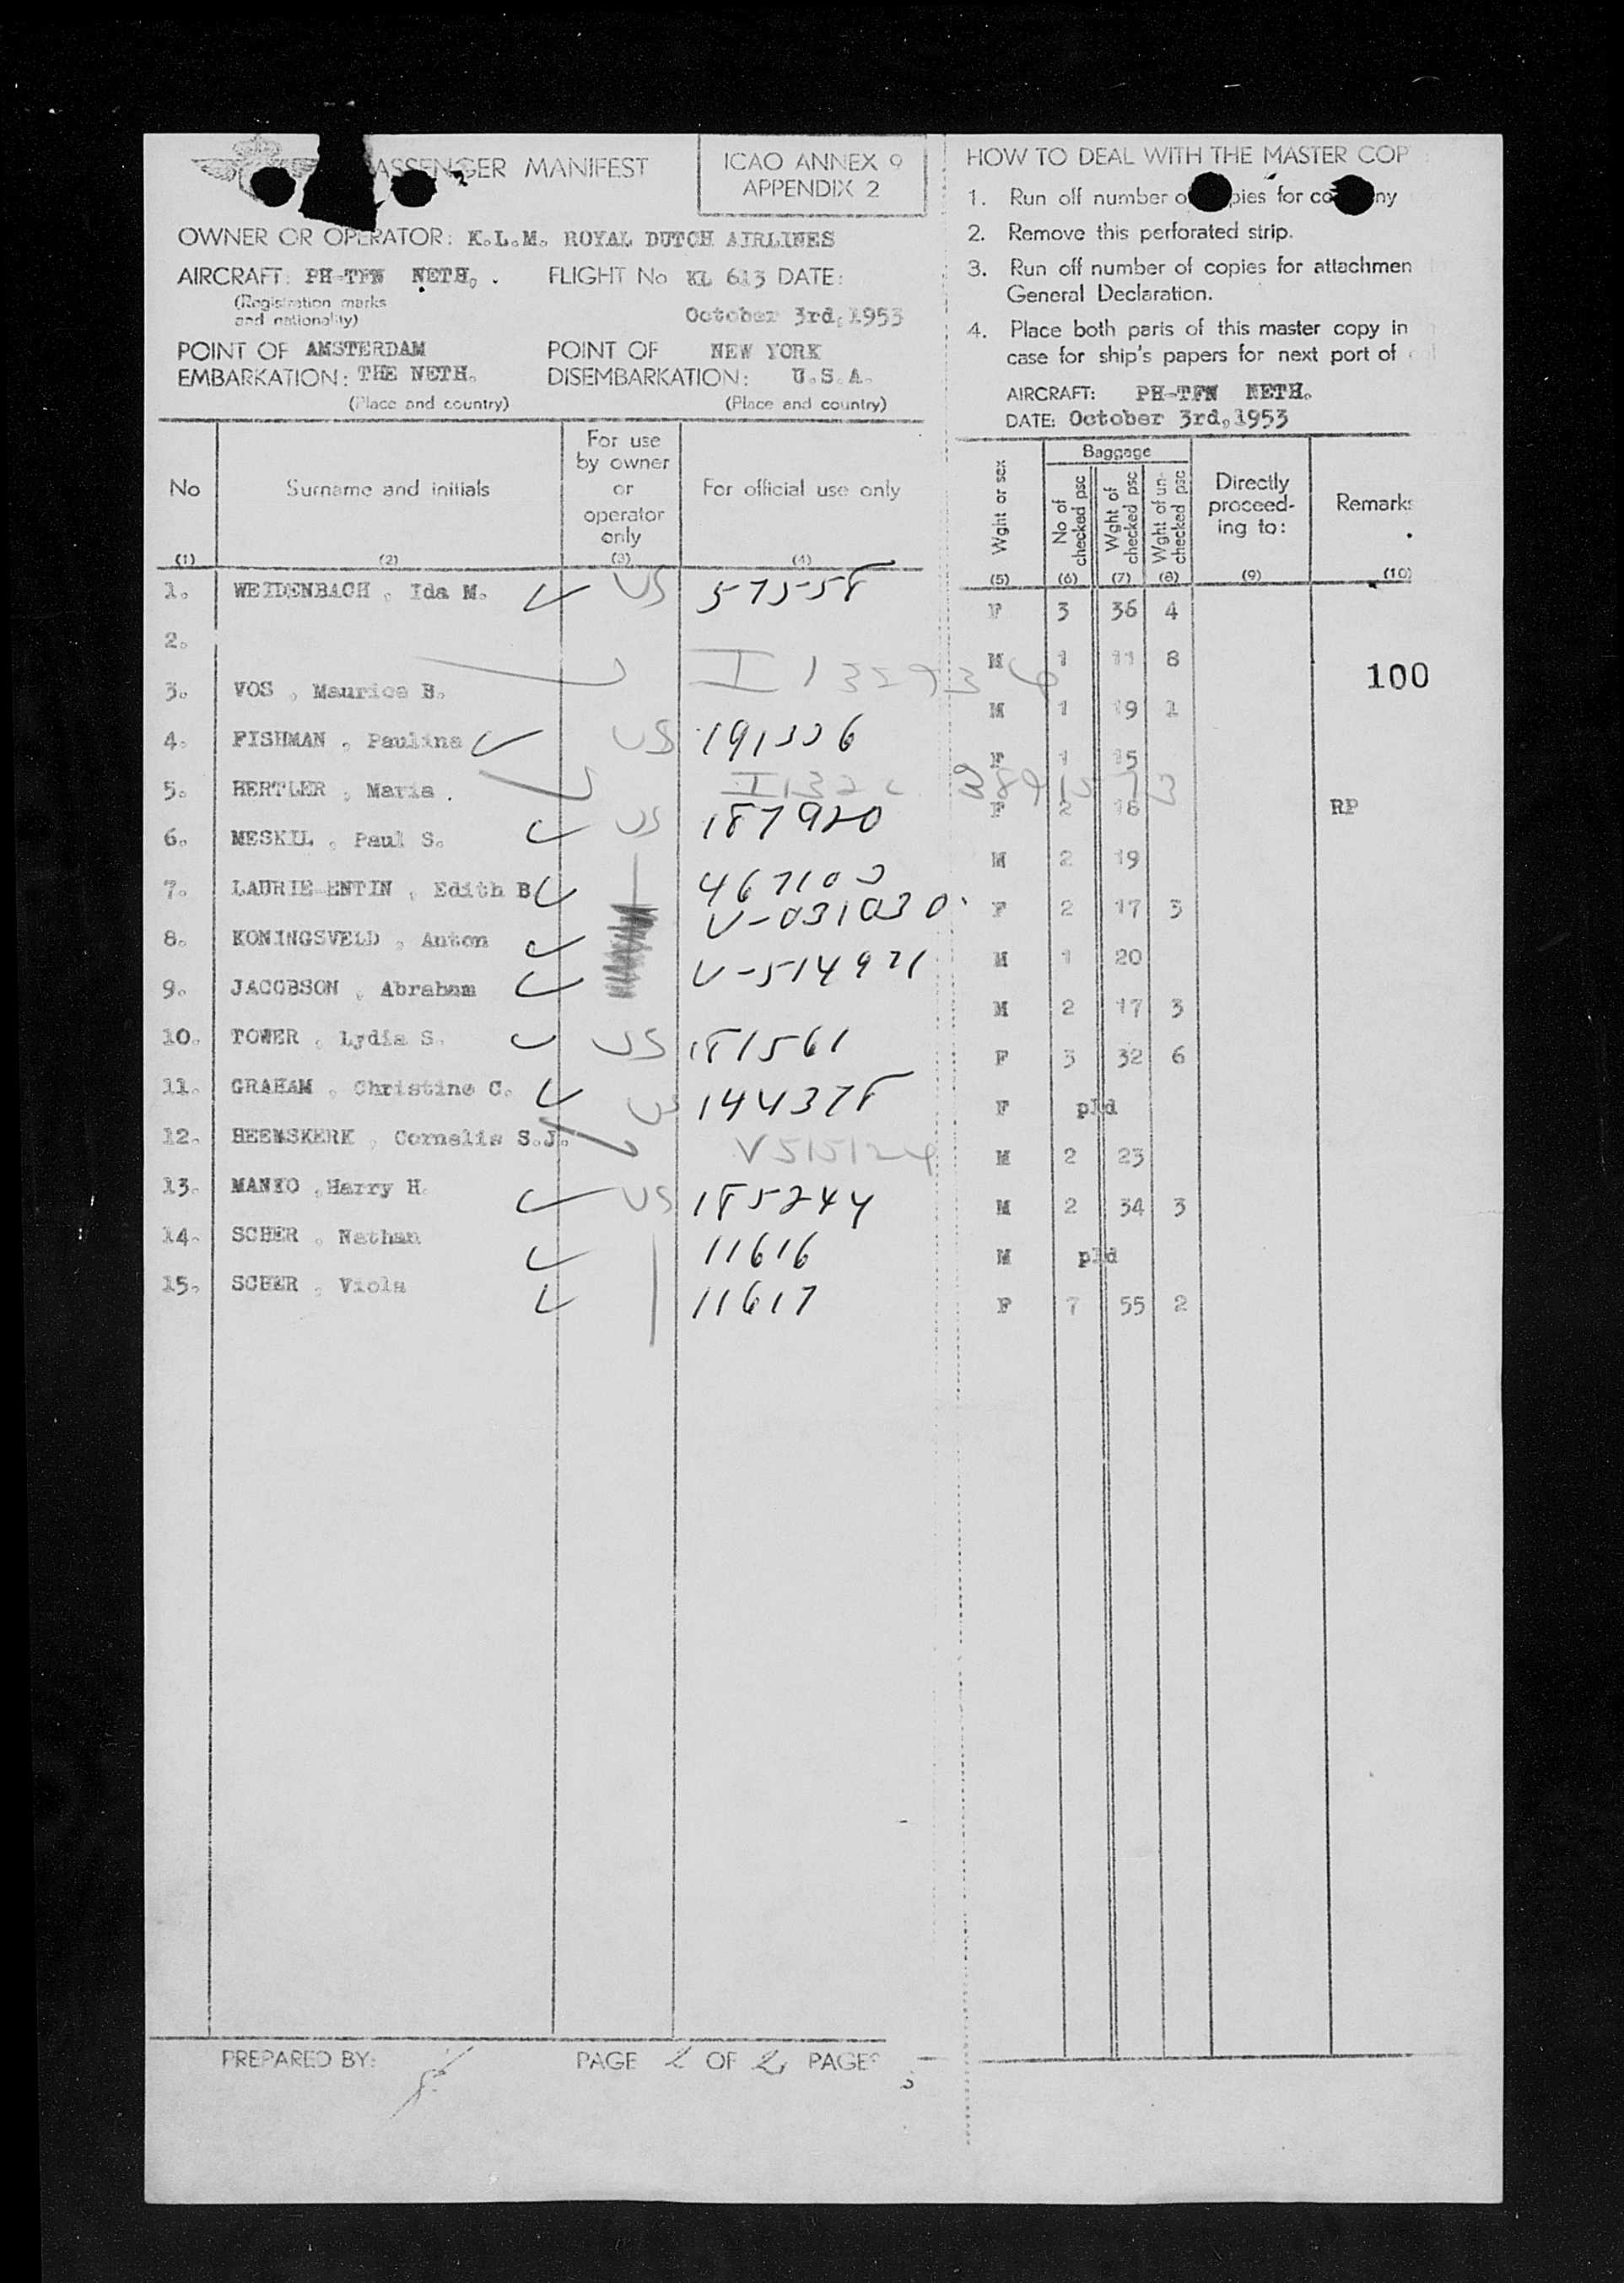 PASSENGER MANIFEST
ICAO ANNEX 9
APPENDIX 2
OWNER OR OPERATOR: K.L.M. ROYAL DUTCH AIRLINES
AIRCRAFT: PH-TFW NETH. FLIGHT No KL 613 DATE:
(Registration marks
and nationality)
October 3rd, 1953
POINT OF AMSTERDAM POINT OF NEW YORK
EMBARKATION: THE NETH. DISEMBARKATION: U.S.A.
(Place and country) (Place and country)
No Surname and initials For use by owner or operator only For official use only
(1) (2) (3) (4)
1. WEIDENBACH, Ida M. US
2.
3. VOS, Maurice B.
4. FISHMAN, Paulina US 191336
5. HERTLER, Maria.
6. MESKIL, Paul S. US 187920
7. LAURIE-ENTIN, Edith B 467103
8. KONINGSVELD, Anton V-031030
9. JACOBSON, Abraham V-514921
10. TOWER, Lydia S. US 181561
11. GRAHAM, Christine C. US 144378
12. HEEMSKERK, Cornelis S.J. V515124
13. MANKO, Harry H. US 185244
14. SCHER, Nathan 11616
15. SCHER, Viola 11617
PREPARED BY: PAGE 2 OF 2 PAGES
HOW TO DEAL WITH THE MASTER COP
1. Run off number of copies for company
2. Remove this perforated strip.
3. Run off number of copies for attachmen
General Declaration.
4. Place both parts of this master copy in
case for ship's papers for next port of
AIRCRAFT: PH-TFW NETH.
DATE: October 3rd, 1953
Baggage
Wght or sex No of checked psc Wght of checked psc Wght of un-checked psc Directly proceed-ing to: Remarks
(5) (6) (7) (8) (9) (10)
F 3 36 4
M 1 11 8
100
M 1 19 1
F 1 15
F 2 16 RP
M 2 19
F 2 17 3
M 1 20
M 2 17 3
F 3 32 6
F pld
M 2 23
M 2 34 3
M pld
F 7 55 2